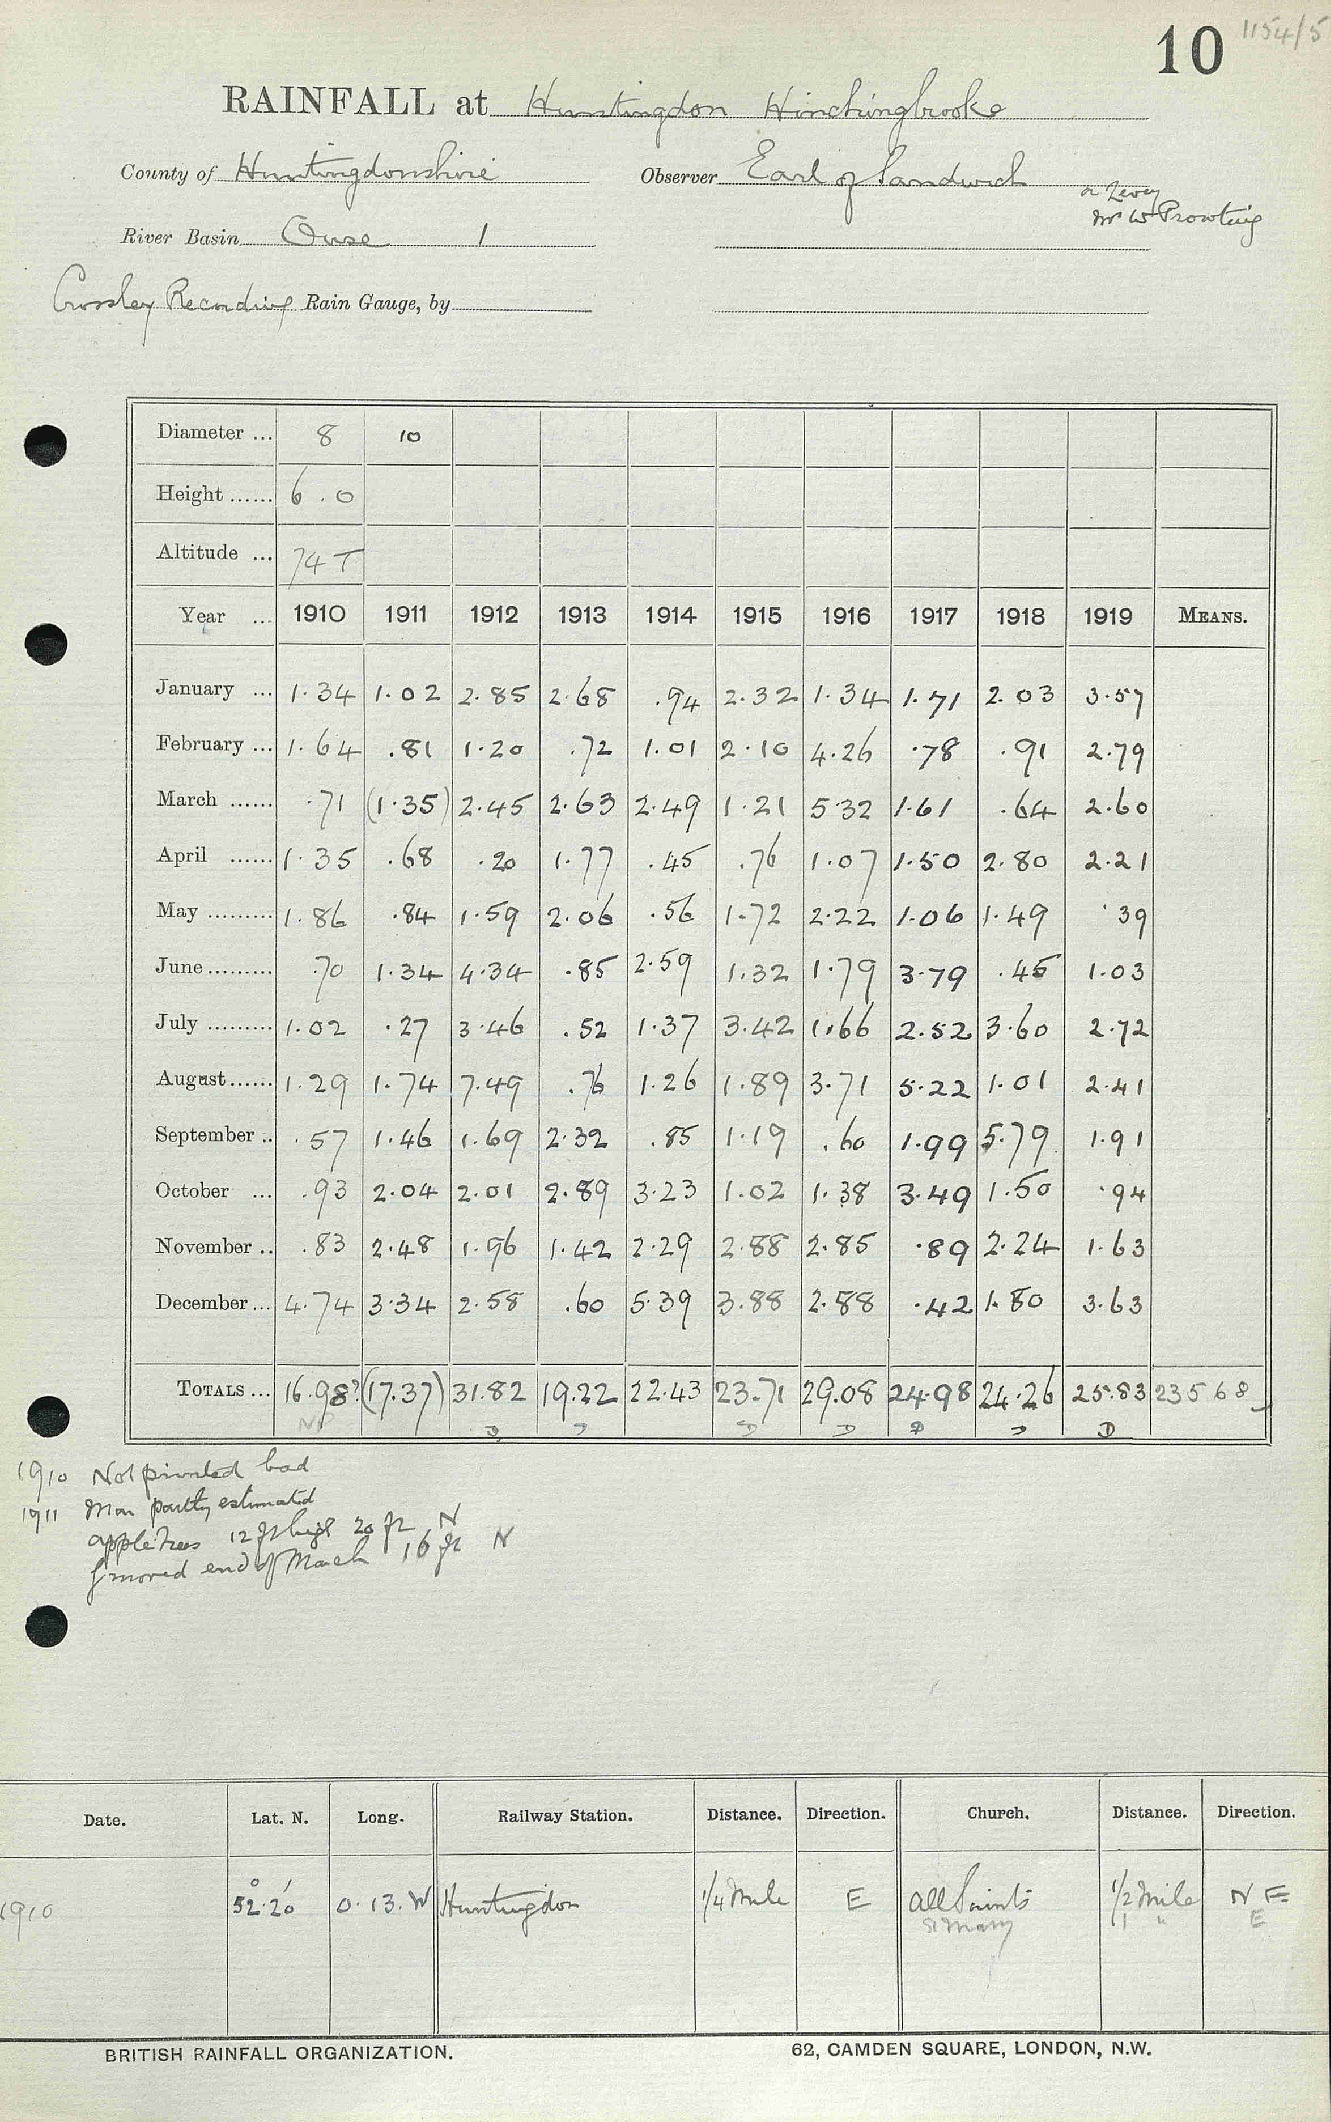 10 1154/5
RAINFALL at Huntingdon Hinchingbrooke
County of Huntingdonshire Observer Earl of Sandwich
Mr W Prowting
River Basin Ouse 1
Crossley Recording Rain Gauge, by
Diameter ... 8 10
Height ...... 6.0
Altitude ... 74 T
Year ... 1910 1911 1912 1913 1914 1915 1916 1917 1918 1919 MEANS.
January ... 1.34 1.02 2.85 2.68 .94 2.32 1.34 1.71 2.03 3.57
February ... 1.64 .81 1.20 .72 1.01 2.10 4.26 .78 .91 2.79
March ...... .71 (1.35) 2.45 2.63 2.49 1.21 5.32 1.61 .64 2.60
April ...... 1.35 .68 .20 1.77 .45 .76 1.07 1.50 2.80 2.21
May ......... 1.86 .84 1.59 2.06 .56 1.72 2.22 1.06 1.49 .39
June ......... .70 1.34 4.34 .85 2.59 1.32 1.79 3.79 .45 1.03
July ......... 1.02 .27 3.46 .52 1.37 3.42 1.66 2.52 3.60 2.72
August ...... 1.29 1.74 7.49 .76 1.26 1.89 3.71 5.22 1.01 2.41
September .. .57 1.46 1.69 2.32 .85 1.19 .60 1.99 5.79 1.91
October ... .93 2.04 2.01 2.89 3.23 1.02 1.38 3.49 1.50 .94
November .. .83 2.48 1.96 1.42 2.29 2.88 2.85 .89 2.24 1.63
December ... 4.74 3.34 2.58 .60 5.39 3.88 2.88 .42 1.80 3.63
TOTALS ... 16.98? (17.37) 31.82 19.22 22.43 23.71 29.08 24.98 24.26 25.83 235 68
NP D D D D D D D
1910 Not printed bad
1911 Mar partly estimated
apple trees 12 ft high 20 ft N
moved end of March 16 ft N
Date. Lat. N. Long. Railway Station. Distance. Direction. Church. Distance. Direction.
1910 52° 20' 0.13.W Huntingdon 1/4 Mile E All Saints 1/2 Mile NE
St Mary 1 " E
BRITISH RAINFALL ORGANIZATION. 62, CAMDEN SQUARE, LONDON, N.W.